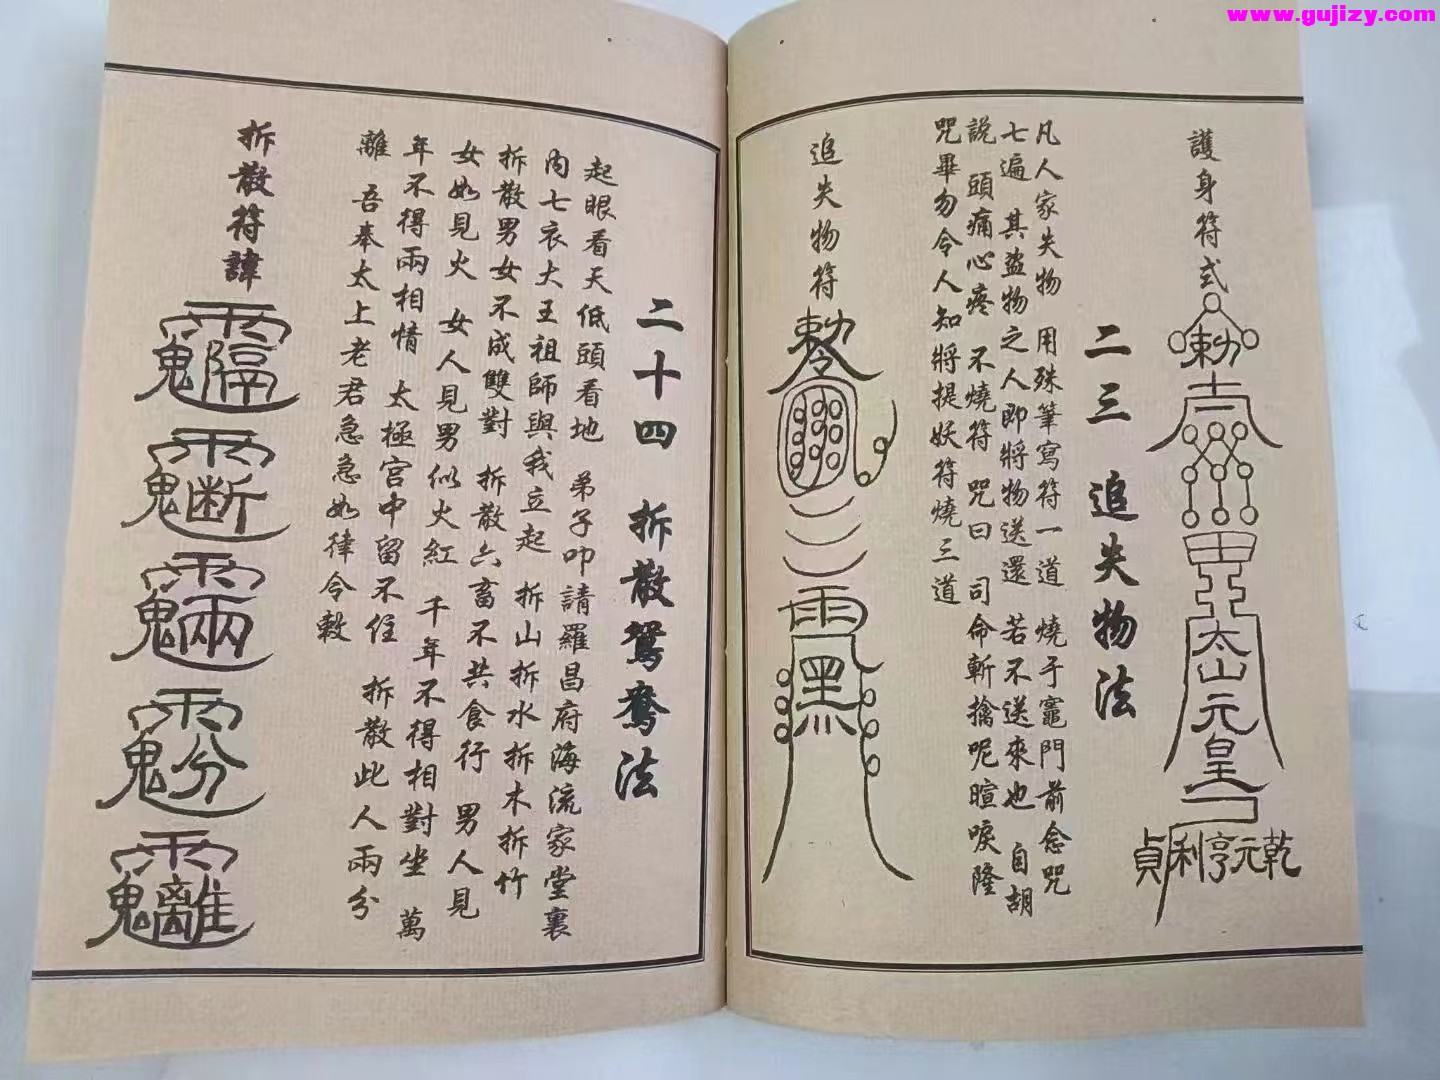 www.gujizy.com
護身符式
勅
太山元皇
乾元亨利貞
二三 追失物法
凡人家失物 用殊筆寫符一道 燒于竈門前 念咒
七遍 其盜物之人即將物送還 若不送來也 自胡
說 頭痛心疼 不燒符 咒曰 司命斬擒呢暄唳隆
咒畢勿令人知將提妖符燒三道
追失物符
勅令
雨黑
二十四 拆散鴛鴦法
起眼看天低頭看地 弟子叩請羅昌府海流家堂裏
內七衣大王祖師與我立起 拆山拆水拆木拆竹
拆散男女不成雙對 拆散六畜不共食行 男人見
女如見火 女人見男似火紅 千年不得相對坐 萬
年不得兩相情 太極宮中留不住 拆散此人兩分
離 吾奉太上老君急急如律令敕
拆散符諱